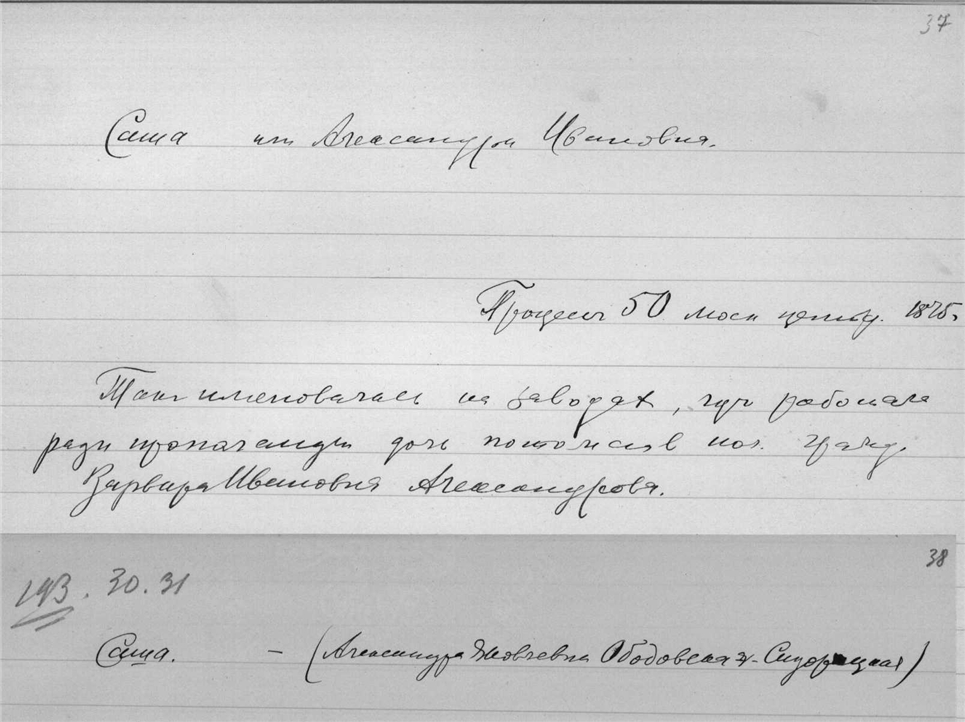 37
Саша или Александра Ивановна.
Процессъ 50 моск 1875г.
Такъ именовалась на заводах, где работала
ради пропаганды дочь потомств поч. гражд.
Варвара Ивановна Александрова.
38
193. 30.31
Саша. - (Александра Яковлевна Ободовская - Сидорацкая)